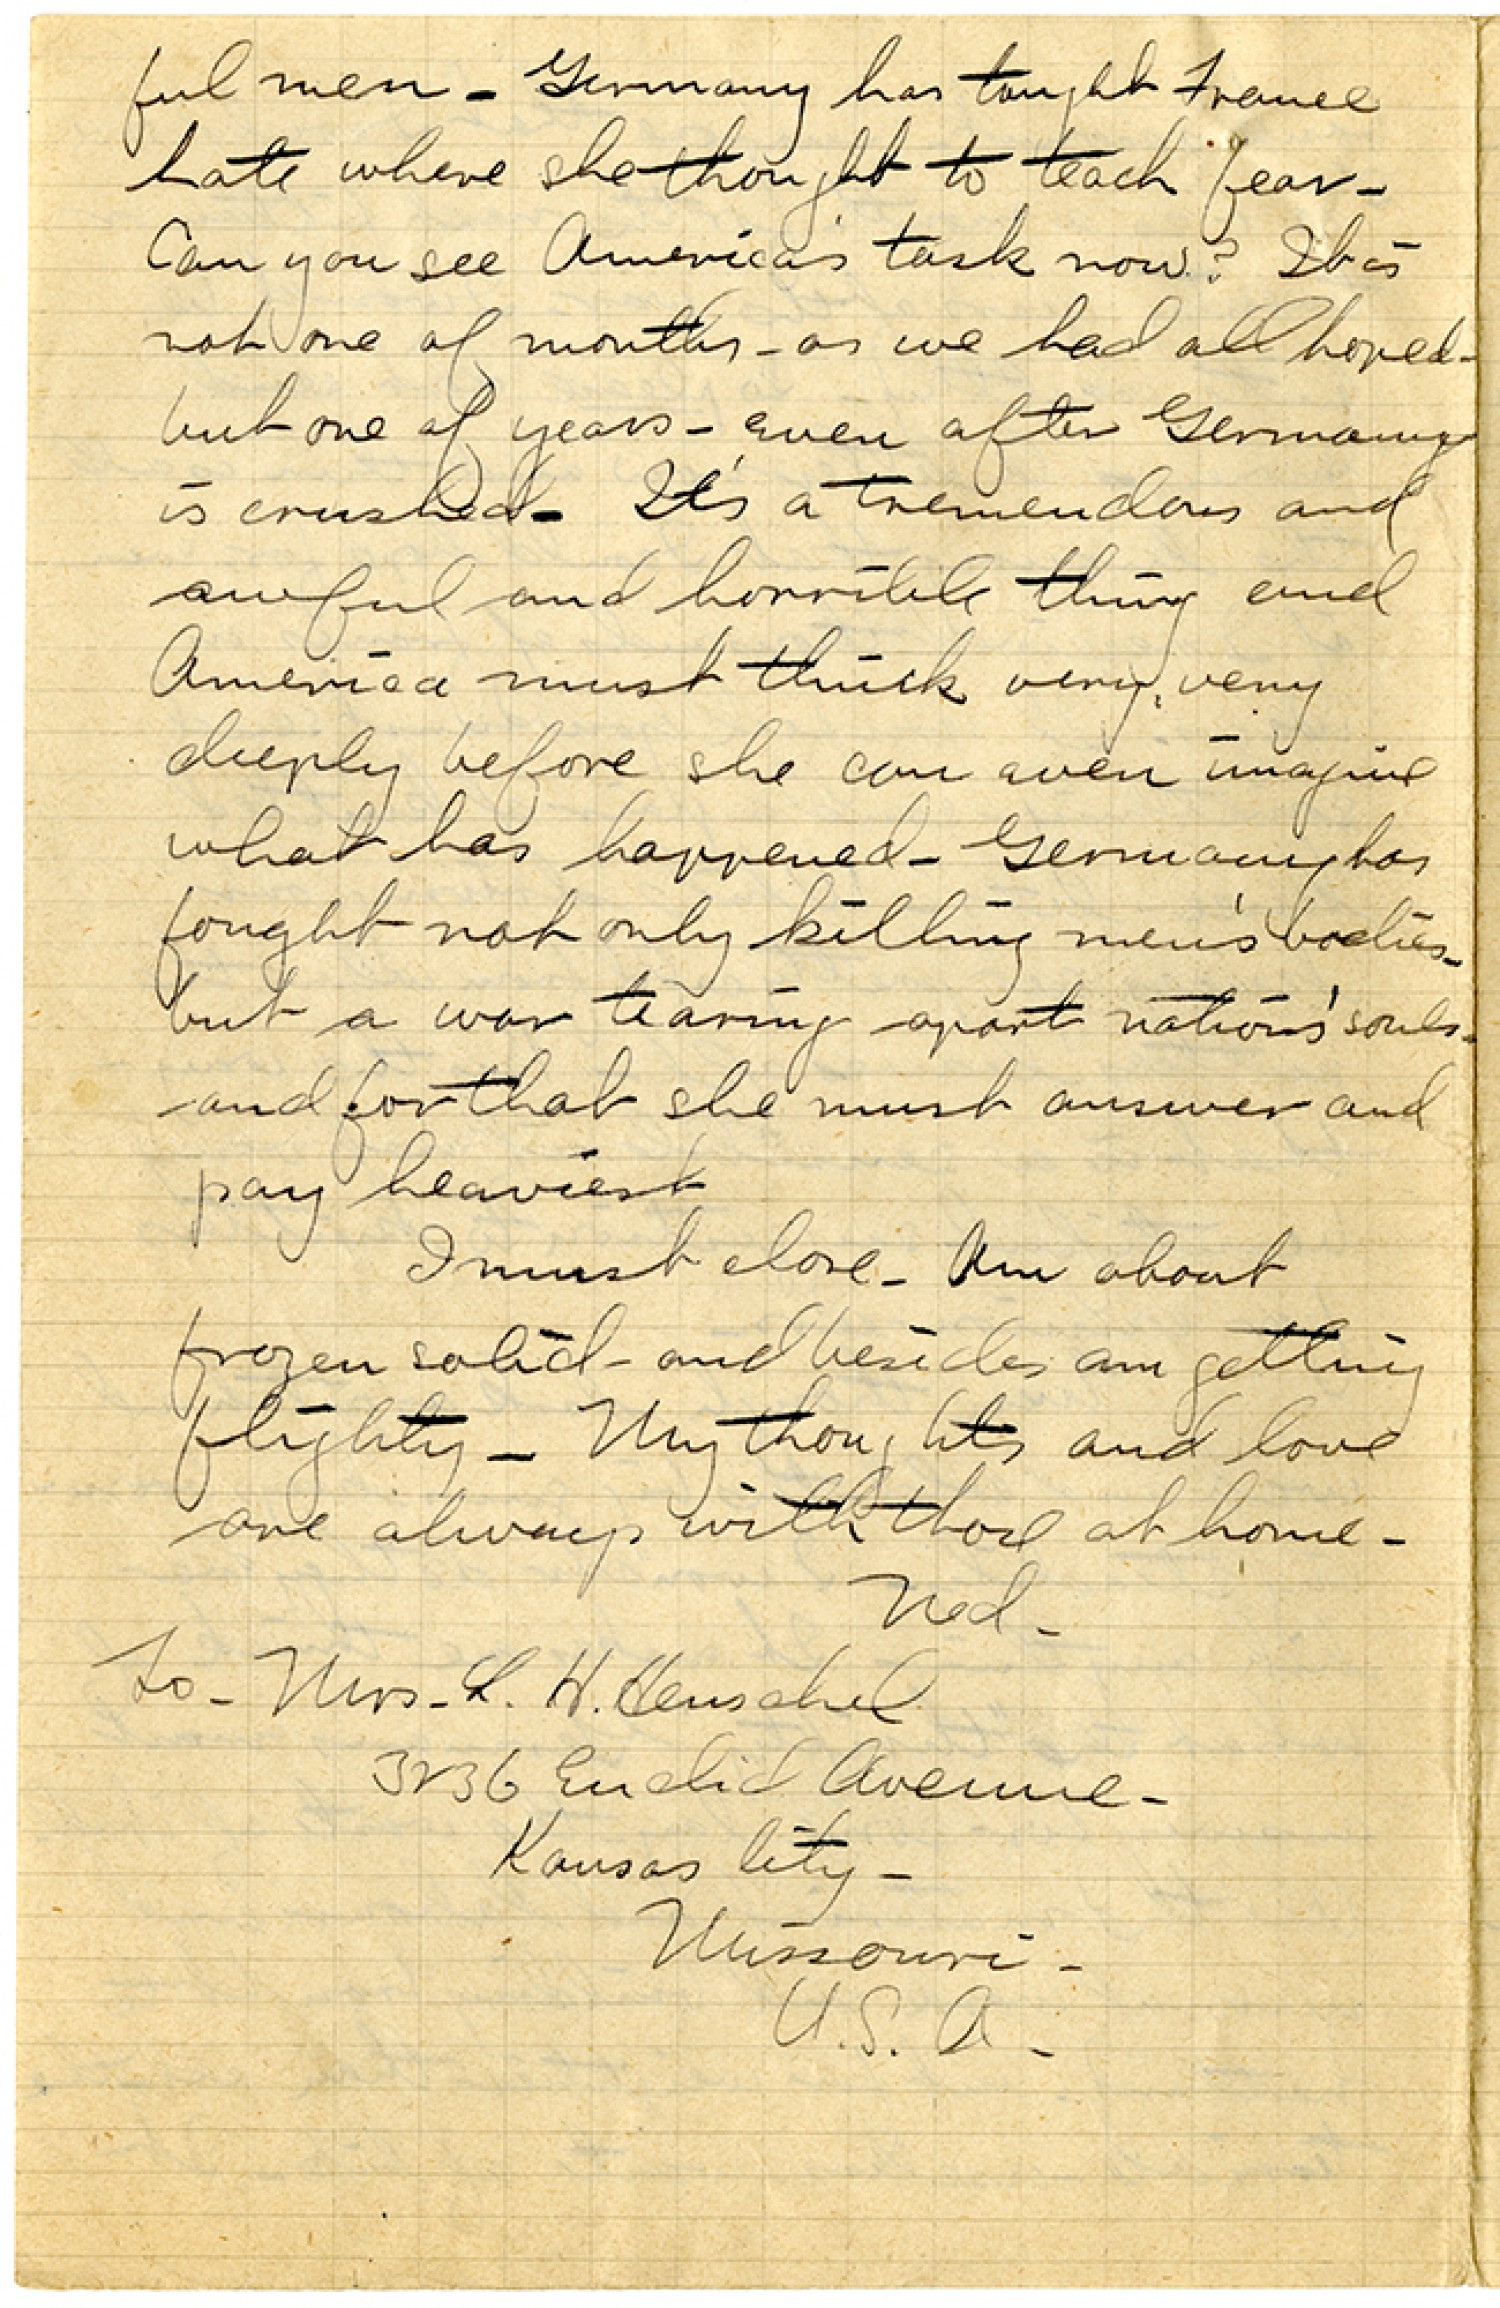 ful men - Germany has taught France
hate where she thought to teach fear -
Can you see America's task now? It is
not one of months - as we had all hoped -
but one of years - even after Germany
is crushed - It's a tremendous and
awful and horrible thing and
America must think very, very
deeply before she can even imagine
what has happened - Germany has
fought not only killing men's bodies -
but a war tearing apart nations' souls -
and for that she must answer and
pay heaviest
I must close - Am about
frozen solid - and besides am getting
flighty - My thoughts and love
are always with those at home -
Ned -
To - Mrs - L. H. Henschel
3236 Euclid Avenue -
Kansas City -
Missouri -
U.S.A -